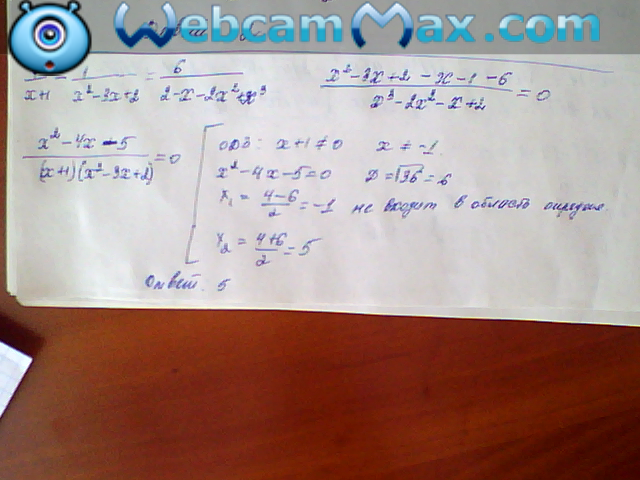 WebcamMax.com
1/(x+1) - 1/(x²-3x+2) = 6/(2-x-2x²+x³)
(x²-3x+2-x-1-6)/(x³-2x²-x+2) = 0
(x²-4x-5)/((x+1)(x²-3x+2)) = 0
ОДЗ: x+1≠0 x≠-1
x²-4x-5=0 D=√36=6
x₁ = (4-6)/2 = -1 не входит в область
x₂ = (4+6)/2 = 5
Ответ. 5